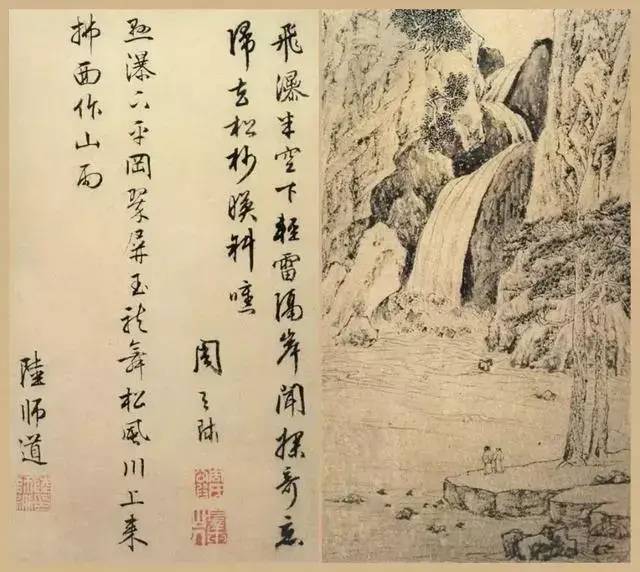 飛瀑半空下輕雷隔岸聞探奇忘
歸去松杪暎斜曛
周天球
懸瀑下平岡翠屏玉龍舞松風川上来
拂面作山雨
陸師道